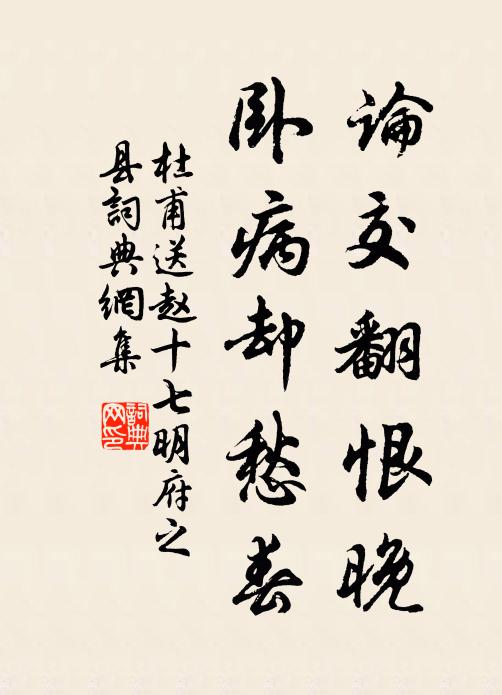 論交翻恨晚
卧病却愁春
杜甫送赵十七明府之
县詞典網集
詞典
网印